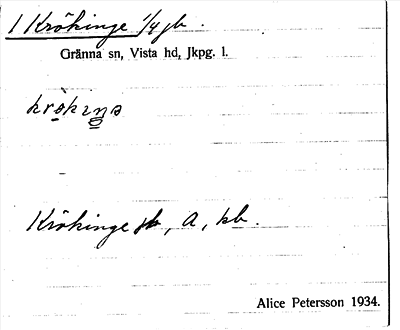 1 Krökinge 1/4 gb.
Gränna sn, Vista hd, Jkpg. l.
Krökinge jb, A, kb.
Alice Petersson 1934.